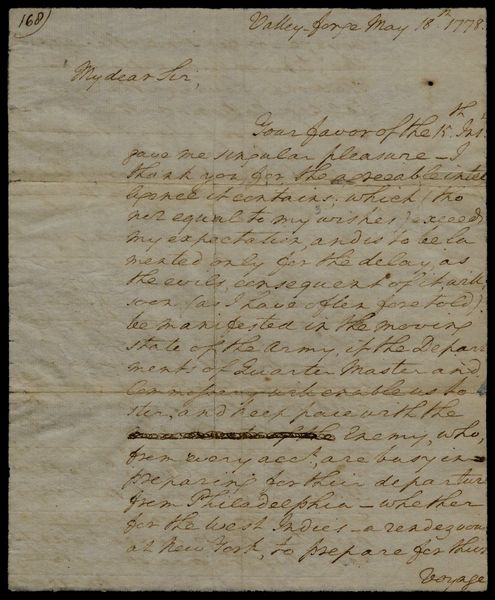 168
Valley-forge May 18th 1778.
My dear Sir,
Your favor of the 15th Inst
gave me singular pleasure - I
thank you for the agreeable intel
ligence it contains, which (tho
not equal to my wishes) exceeds
my expectation, and is to be la
mented only for the delay, as
the evils consequent of it will
soon (as I have often foretold)
be manifested in the moving
state of the Army, if the Depart
ments of Quarter Master and
Commissary will enable us to
stir, and keep pace with the
Enemy, who,
from every acct, are busy in
preparing for their departure
from Philadelphia - whether
for the West Indies - a rendezvous
at New York, to prepare for their
Voyage